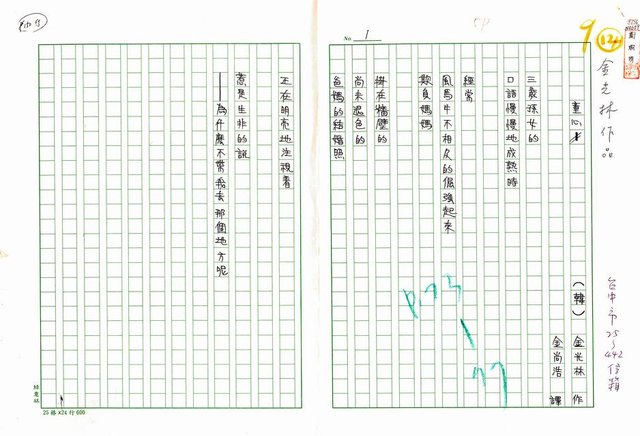 金光林作品
台中市25~442信箱
9
12
No. 1
童心
(韓) 金光林 作
金尚浩 譯
三歲孫女的
口語慢慢地成熟時
經常
風馬牛不相及的倔強起來
欺負媽媽
掛在牆壁的
尚未退色的
爸媽的結婚照
正在明亮地注視着
惹是生非的說
——為什麼不帶我去那個地方呢
P.73
77
25格x24行600